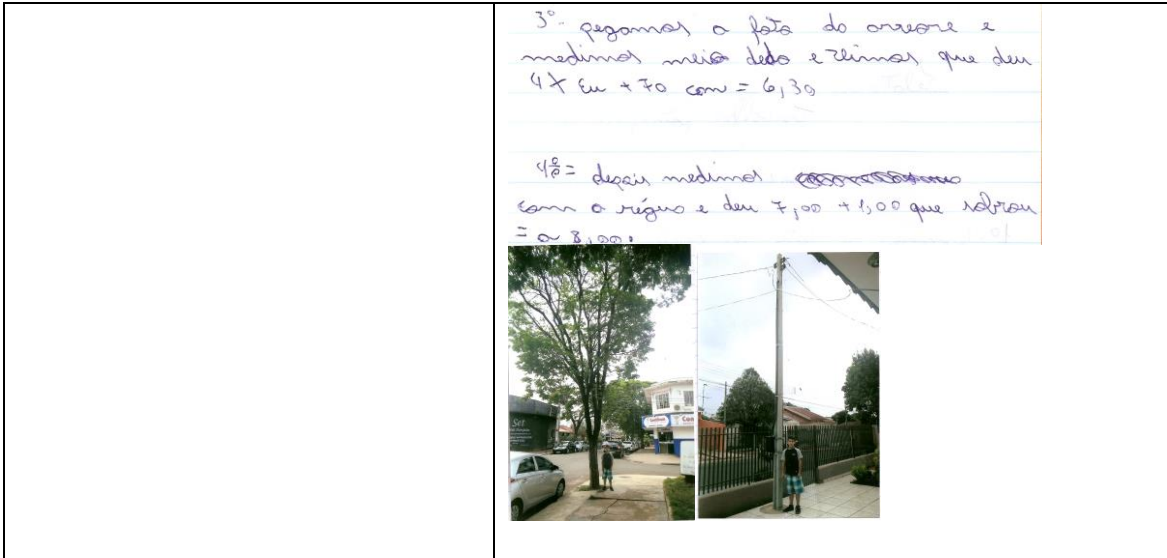 3º- pegamos a foto da arvore e
medimos meio dedo e vimos que deu
4X Eu + 70 com = 6,30
4º = depois medimos
com a régua e deu 7,00 + 1,00 que sobrou
= a 8,00.
Set